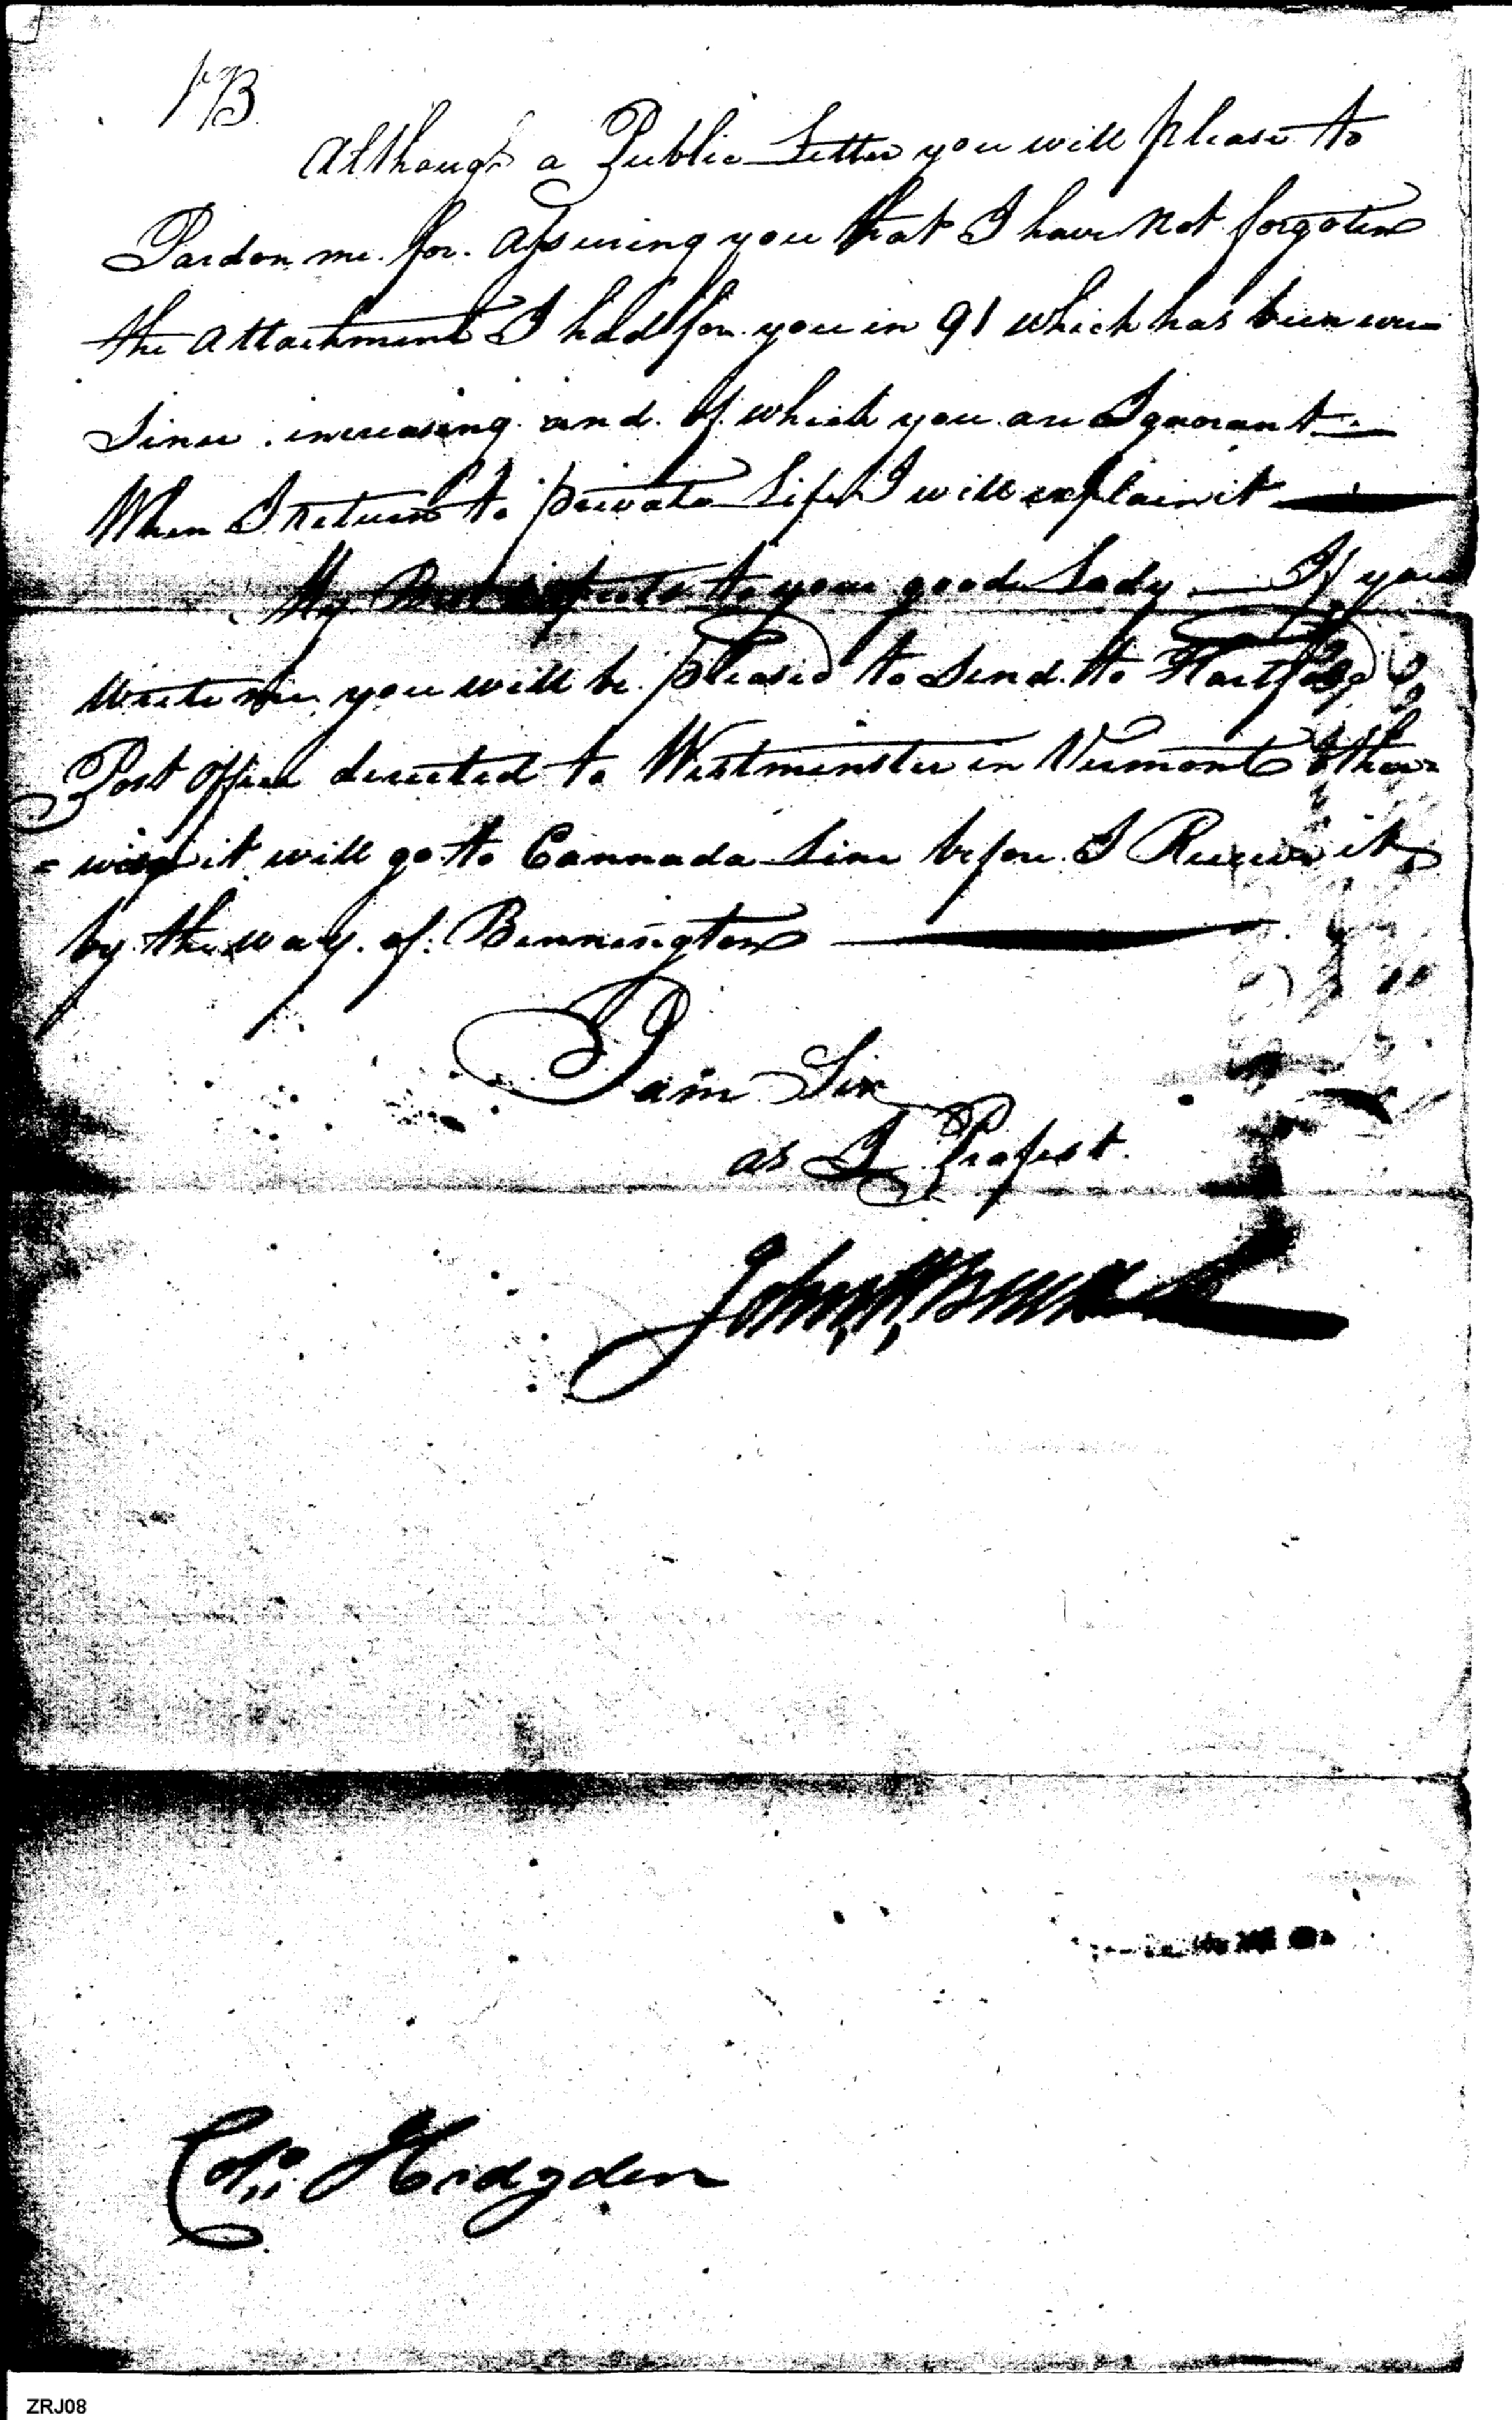 PB
Although a Public Letter you will please to
Pardon me. for. assuring you that I have Not forgoten
the attachment I had for you in 91 which has been ever
Since . increasing. and. of which you are Ignorant —
When I Return to private Life I will explain it —
My Best respects to your good Lady — If you
write me you will be pleased to Send to Hartford
Post office directed to Westminster in Vermont other=
= wise it will go to Cannada Line before I Receive it
by the way. of. Bennington —
I am Sir
as I Profest.
John H Buell
Coln. Hodgden
ZRJ08